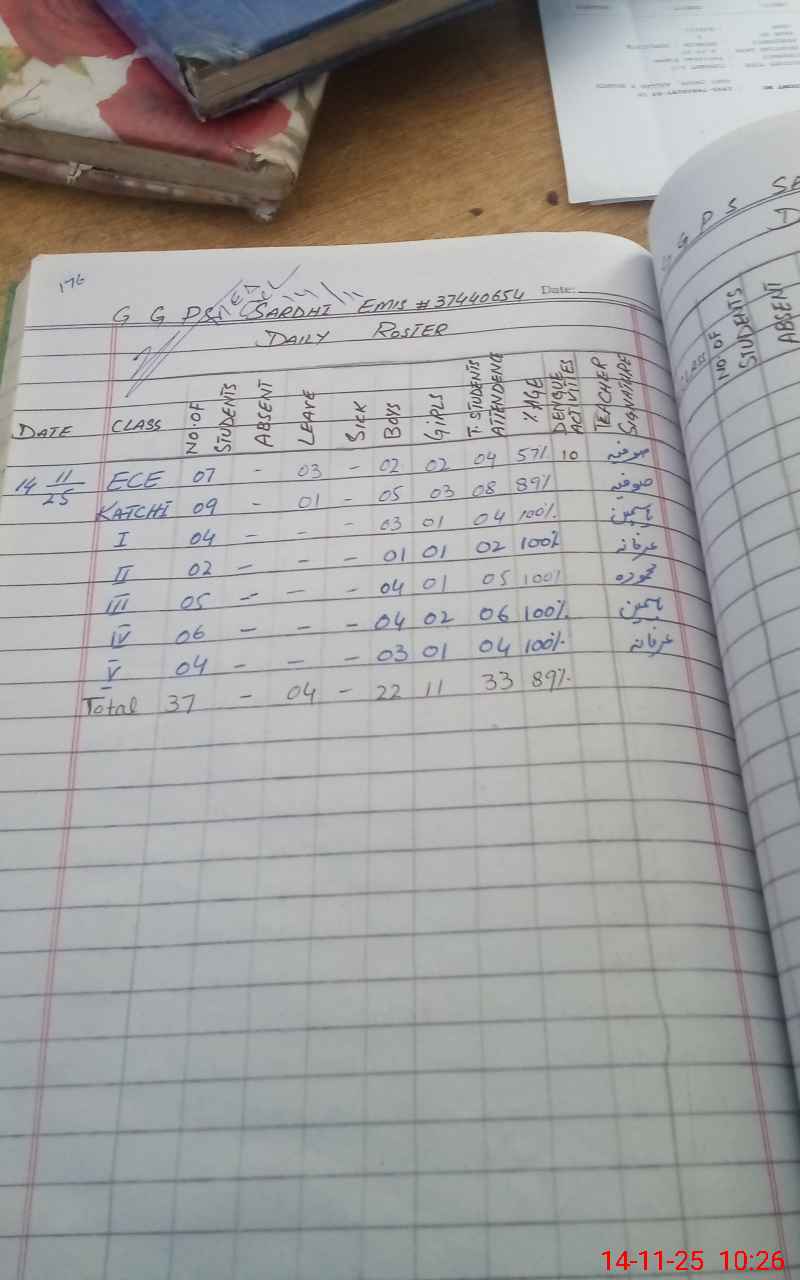 176
G G P S SARDHI EMIS # 37440654 Date:
DAILY ROSTER
DATE CLASS NO. OF STUDENTS ABSENT LEAVE SICK BOYS GIRLS T. STUDENTS ATTENDENCE % AGE DENGUE ACTIVITES TEACHER SIGNATURE
14 11/25 ECE 07 - 03 - 02 02 04 57% 10 صوفیہ
KATCHI 09 - 01 - 05 03 08 89% صوفیہ
I 04 - - - 03 01 04 100% یاسمین
II 02 - - - 01 01 02 100% عرفانہ
III 05 - - - 04 01 05 100% محمودہ
IV 06 - - - 04 02 06 100% یاسمین
V 04 - - - 03 01 04 100% عرفانہ
Total 37 - 04 - 22 11 33 89%
G P S
CLASS NO. OF STUDENTS ABSENT
14-11-25 10:26